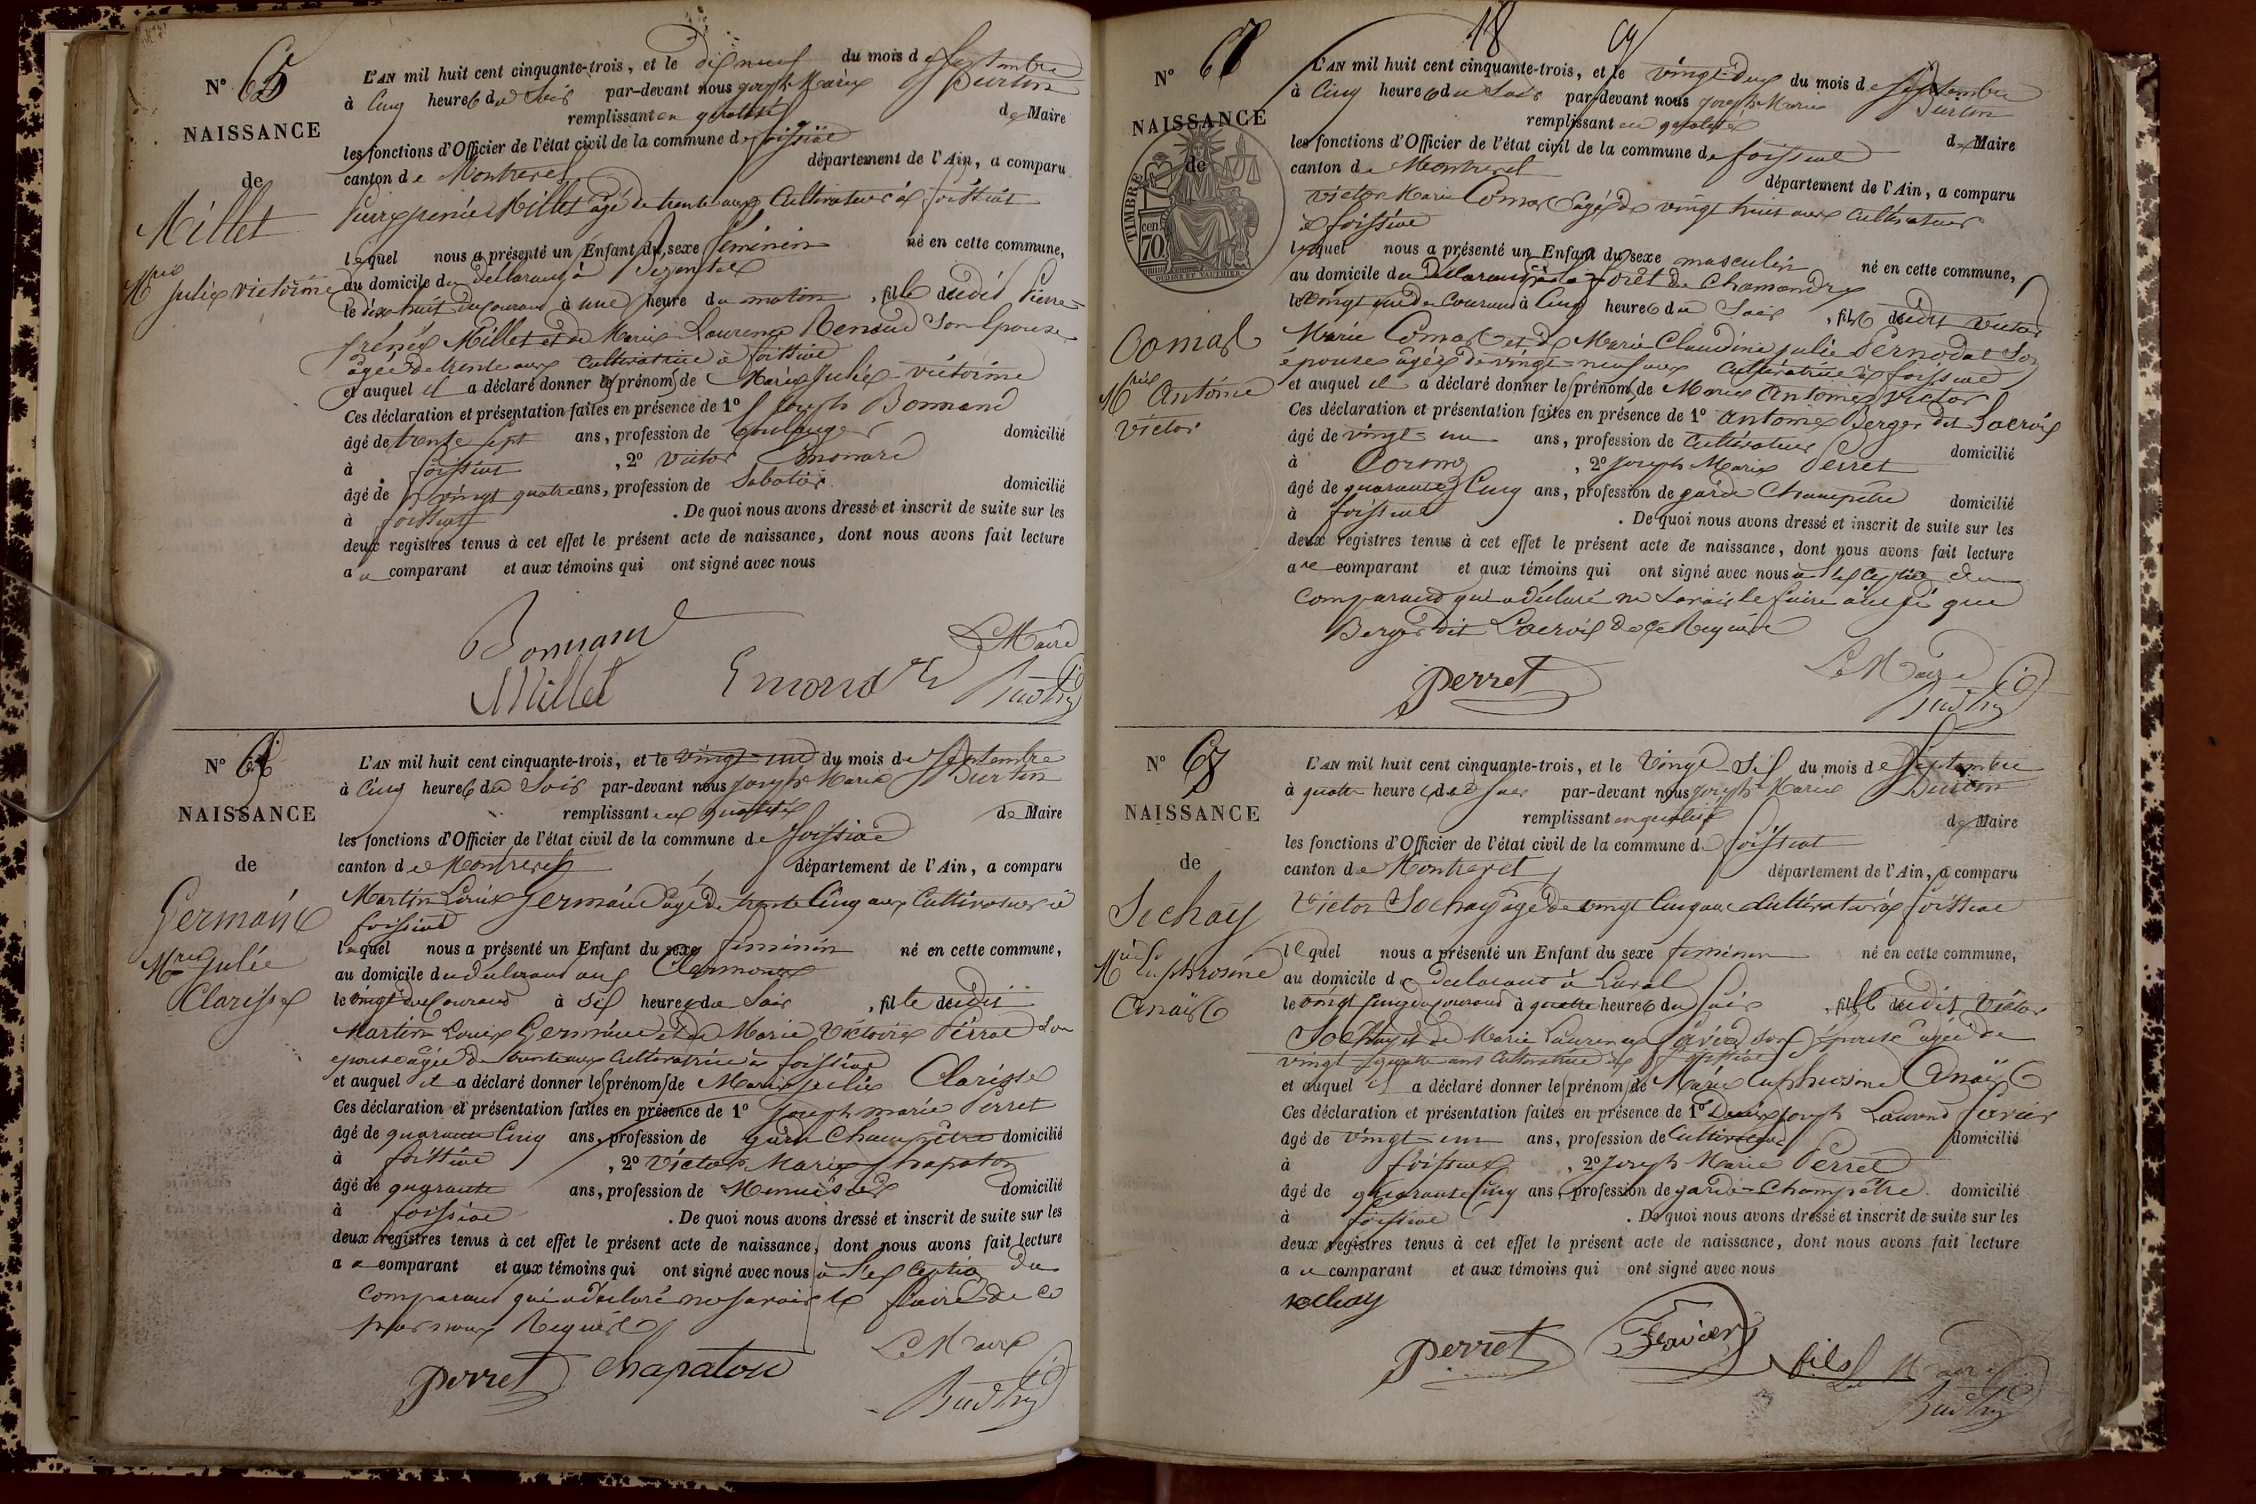 N° 65
NAISSANCE
de
Millet
Mrie Julie victorine
L'AN mil huit cent cinquante-trois, et le dix neuf du mois de Septembre
à Cinq heures du Soir par-devant nous joseph Marie Burtin
remplissant en qualité de Maire
les fonctions d'Officier de l'état civil de la commune de foissiat
canton de Montrevel département de l'Ain, a comparu
Millet âgé de trente ans Cultivateur à foissiat
lequel nous a présenté un Enfant du sexe féminin né en cette commune,
au domicile du déclarant à
le dix huit du courant à une heure du matin, fille dudit Pierre
Millet et de Marie Laurence Renoud Son Epouse
âgée de trente ans Cultivatrice à foissiat
et auquel il a déclaré donner les prénoms de Marie Julie victorine
Ces déclaration et présentation faites en présence de 1° Joseph Bonnand
âgé de trente sept ans, profession de boulanger domicilié
à foissiat, 2° victor Emonard
âgé de vingt quatre ans, profession de Sabotier domicilié
à foissiat. De quoi nous avons dressé et inscrit de suite sur les
deux registres tenus à cet effet le présent acte de naissance, dont nous avons fait lecture
au comparant et aux témoins qui ont signé avec nous
Bonnand
Le Maire
Millet Emonard
N° 66
NAISSANCE
de
Germain
Mrie Julie
Clarisse
L'AN mil huit cent cinquante-trois, et le vingt-un du mois de Septembre
à Cinq heures du Soir par-devant nous joseph Marie Burtin
remplissant en qualité de Maire
les fonctions d'Officier de l'état civil de la commune de foissiat
canton de Montrevel département de l'Ain, a comparu
Martin Louis Germain âgé de trente Cinq ans Cultivateur à
foissiat
lequel nous a présenté un Enfant du sexe féminin né en cette commune,
au domicile du déclarant aux
le vingt du Courant à six heures du Soir, fille dudit
Martin Louis Germain et de Marie Victoire Perrat Son
épouse âgée de trente ans Cultivatrice à foissiat
et auquel il a déclaré donner les prénoms de Marie julie Clarisse
Ces déclaration et présentation faites en présence de 1° Joseph marie Perret
âgé de quarante Cinq ans, profession de garde Champêtre domicilié
à foissiat, 2° Victor Marie Chapaton
âgé de quarante ans, profession de Menuisier domicilié
à foissiat. De quoi nous avons dressé et inscrit de suite sur les
deux registres tenus à cet effet le présent acte de naissance, dont nous avons fait lecture
au comparant et aux témoins qui ont signé avec nous à l'exception du
Comparant qui a déclaré ne savoir le faire de ce
par nous Requis
Le Maire
perret chapatou
18
N° 67
NAISSANCE
de
TIMBRE
70 cen
Comas
Mrie Antoine
Victor
L'AN mil huit cent cinquante-trois, et le vingt-deux du mois de Septembre
à Cinq heures du Soir par-devant nous joseph Marie Burtin
remplissant en qualité de Maire
les fonctions d'Officier de l'état civil de la commune de foissiat
canton de Montrevel département de l'Ain, a comparu
Victor Marie Comas âgé de vingt huit ans Cultivateur
à foissiat
lequel nous a présenté un Enfant du sexe masculin né en cette commune,
au domicile du Déclarant à la forêt de Chamandre
le vingt un du Courant à Cinq heures du Soir, fils dudit Victor
Marie Comas et de Marie Claudine julie Pernodat Son
épouse âgée de vingt-neuf ans Cultivatrice à foissiat
et auquel il a déclaré donner les prénoms de Marie Antoine Victor
Ces déclaration et présentation faites en présence de 1° antoine Berger dit Lacroix
âgé de vingt-un ans, profession de Cultivateur domicilié
à, 2° Joseph Marie Perret
âgé de quarante Cinq ans, profession de garde Champêtre domicilié
à foissiat. De quoi nous avons dressé et inscrit de suite sur les
deux registres tenus à cet effet le présent acte de naissance, dont nous avons fait lecture
au comparant et aux témoins qui ont signé avec nous à l'exception du
Comparant qui a déclaré ne savoir le faire ainsi que
Berger dit Lacroix de ce Requis
Le Maire
perret
N° 68
NAISSANCE
de
Sochay
Mrie Euphrosine
Anaïs
L'AN mil huit cent cinquante-trois, et le Vingt-Six du mois de Septembre
à quatre heures du Soir par-devant nous joseph Marie Burtin
remplissant en qualité de Maire
les fonctions d'Officier de l'état civil de la commune de foissiat
canton de Montrevel département de l'Ain, a comparu
Victor Sochay âgé de vingt Cinq ans Cultivateur à foissiat
lequel nous a présenté un Enfant du sexe féminin né en cette commune,
au domicile du déclarant à Laval
le vingt Cinq du Courant à quatre heures du Soir, fille dudit Victor
Sochay et de Marie Laurence favier son Epouse âgée de
vingt quatre ans Cultivatrice à foissiat
et auquel il a déclaré donner les prénoms de Marie euphrosine Anaïs
Ces déclaration et présentation faites en présence de 1° Denis joseph Laurent favier
âgé de vingt-un ans, profession de Cultivateur domicilié
à foissiat, 2° Joseph Marie Perret
âgé de quarante Cinq ans, profession de garde-Champêtre domicilié
à foissiat. De quoi nous avons dressé et inscrit de suite sur les
deux registres tenus à cet effet le présent acte de naissance, dont nous avons fait lecture
au comparant et aux témoins qui ont signé avec nous
sochay
perret Favier fils
Le Maire